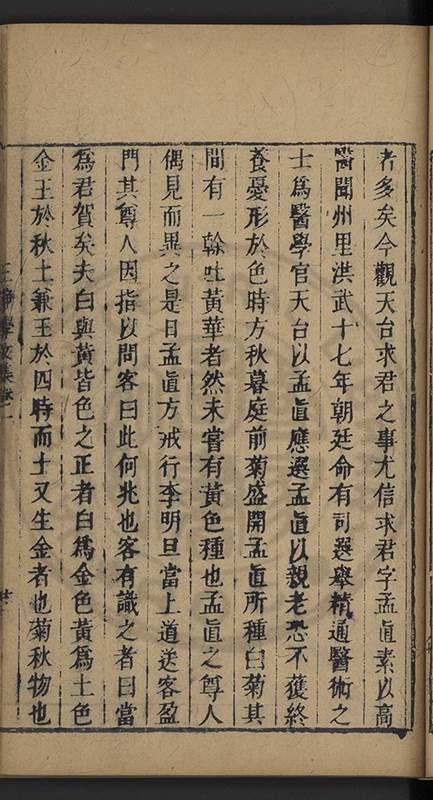 者多矣今觀天台求君之事尤信求君字孟眞素以高
醫聞州里洪武十七年朝廷命有司選舉精通醫術之
士爲醫學官天台以孟眞應選孟眞以親老恐不獲終
養憂形於色時方秋暮庭前菊盛開孟眞所種白菊其
間有一榦吐黃華者然未嘗有黃色種也孟眞之尊人
偶見而異之是日孟眞方戒行李明旦當上道送客盈
門其尊人因指以問客曰此何兆也客有識之者曰當
爲君賀矣夫白與黃皆色之正者白爲金色黃爲土色
金王於秋土兼王於四時而土又生金者也菊秋物也